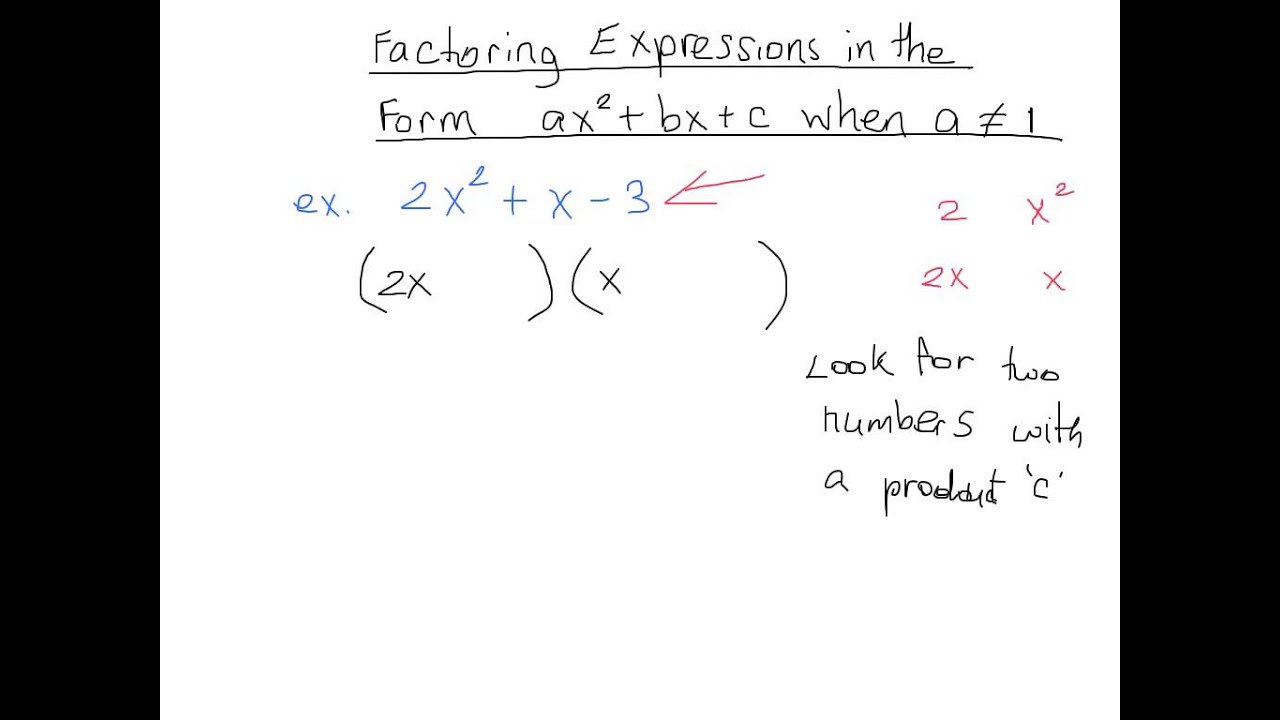 Factoring Expressions in the
Form ax² + bx + c when a ≠ 1
ex. 2x² + x - 3
2 x²
(2x )(x )
2x x
Look for two
numbers with
a product 'c'